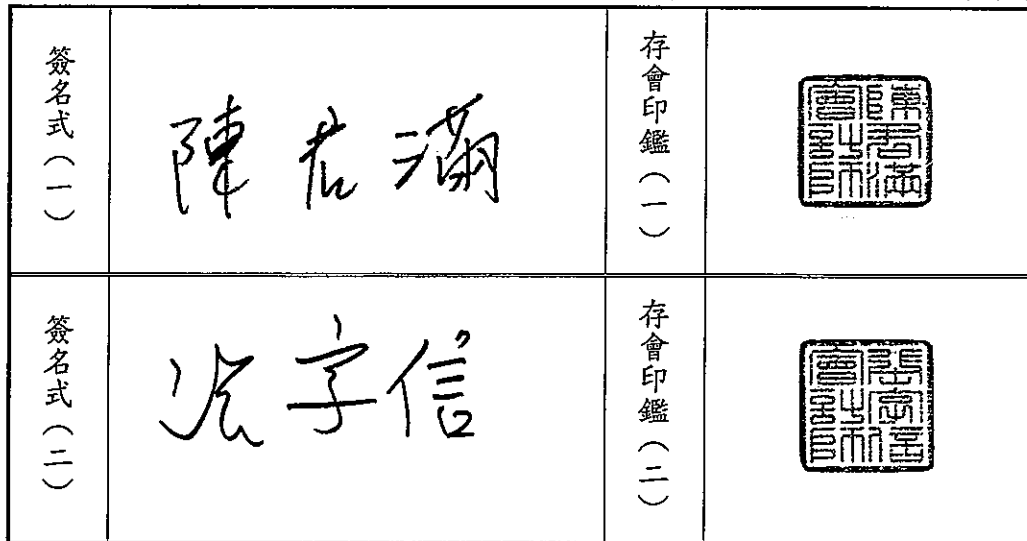 簽名式（一）
陳君滿
存會印鑑（一）
陳君滿會計師
簽名式（二）
張字信
存會印鑑（二）
張字信會計師